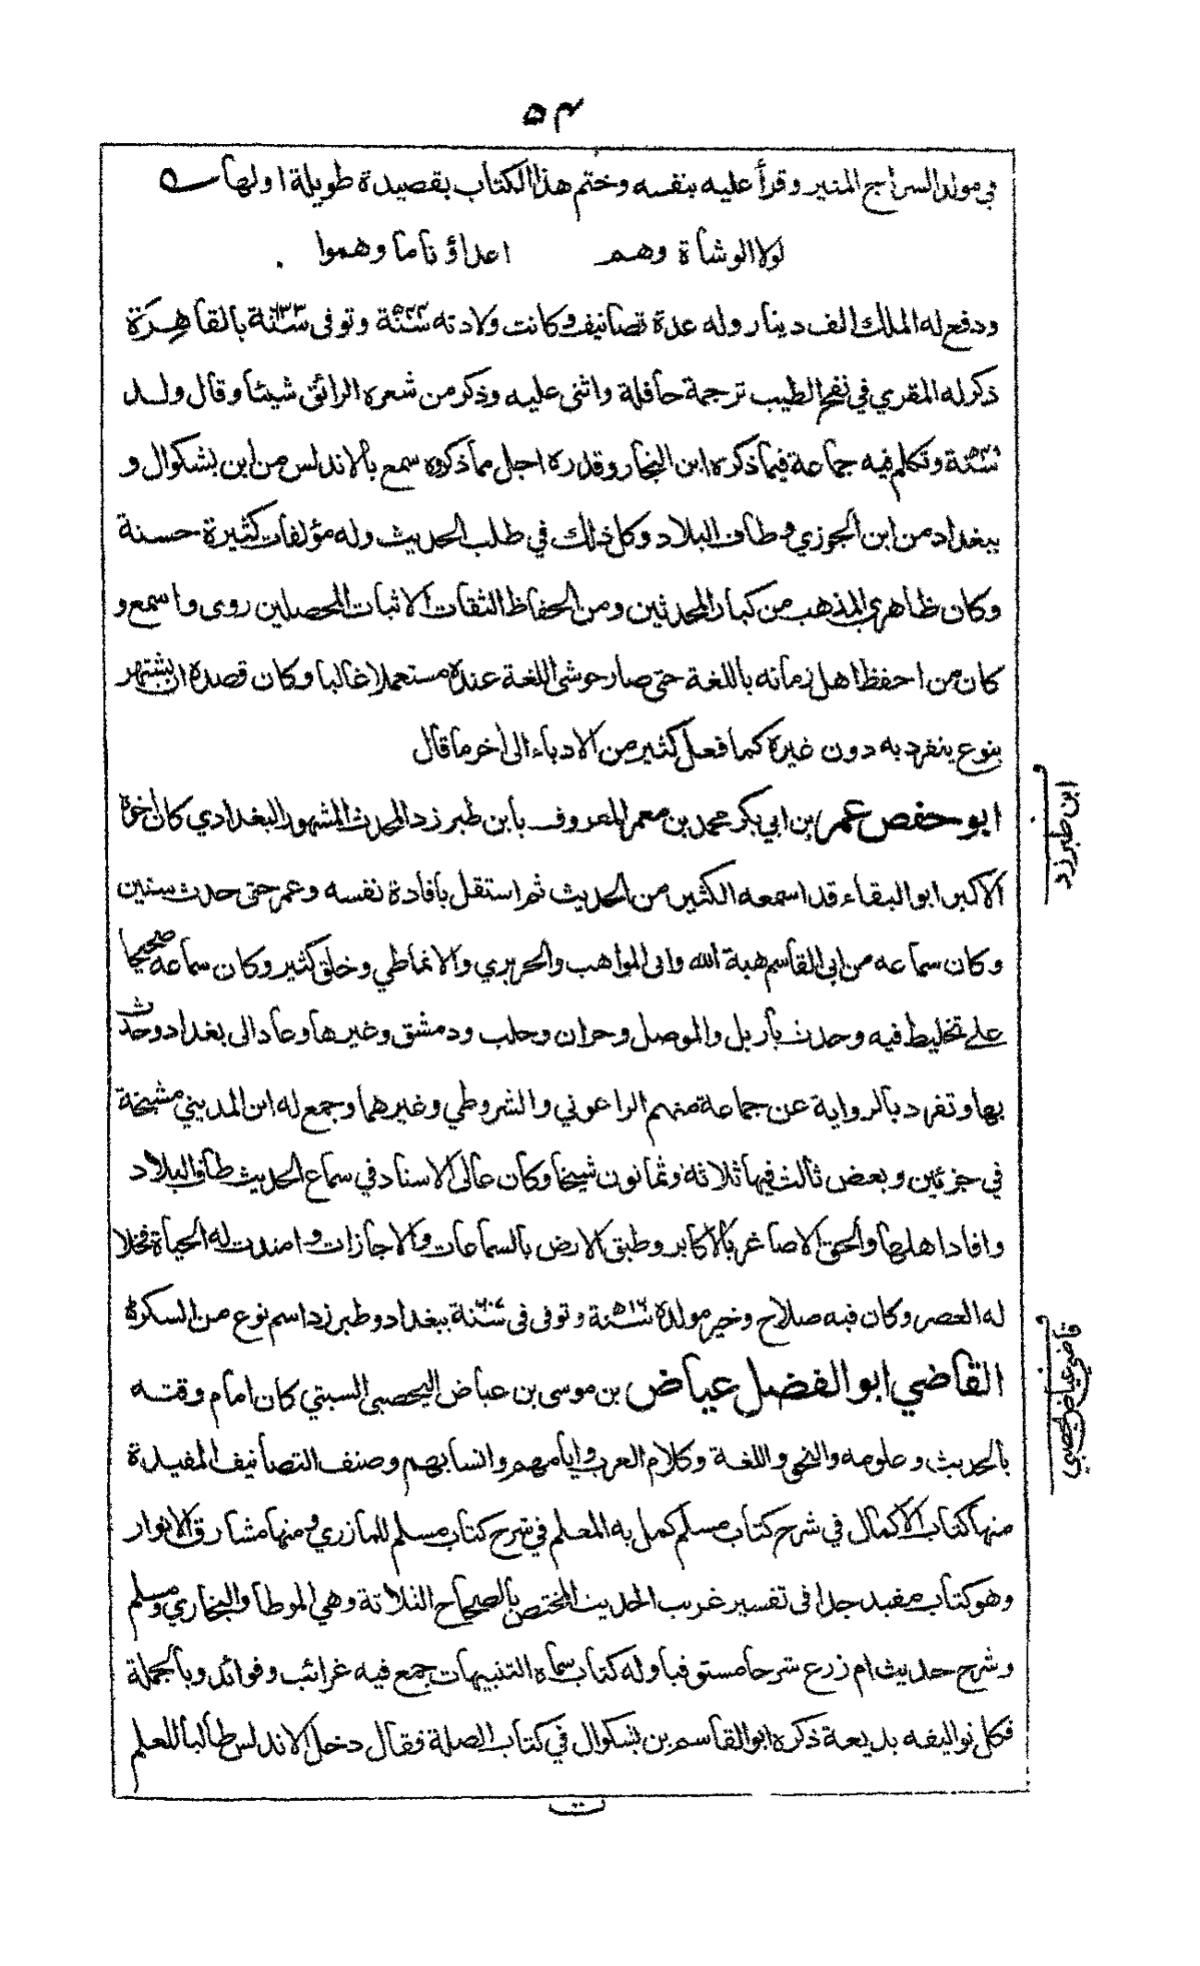 ٥٣
في مولد السراج المنير وقرأ عليه بنفسه وختم هذا الكتاب بقصيدة طويلة اولها
لولا الوشاة وهم اعداؤنا ما وهموا
ودفع له الملك الف دينار وله عدة تصانيف وكانت ولادته سنة وتوفى سنة ٦٣٣ بالقاهرة
ذكر له المقري في نفح الطيب ترجمة حافلة واثنى عليه وذكر من شعره الرائق شيئا وقال ولد
سنة وتكلم فيه جماعة فيما ذكره ابن النجار وقدره اجل مما ذكروه سمع بالاندلس من ابن بشكوال و
ببغداد من ابن الجوزي وطاف البلاد وكل ذلك في طلب الحديث وله مؤلفات كثيرة حسنة
وكان ظاهري المذهب من كبار المحدثين ومن الحفاظ الثقات الاثبات المحصلين روى واسمع و
كان من احفظ اهل زمانه باللغة حتى صار حوشى اللغة عنده مستعملا غالبا وكان قصده ان يشتهر
بنوع ينفرد به دون غيره كما فعل كثير من الادباء الى اخر ما قال
ابن طبرزد
ابو حفص عمر بن ابي بكر محمد بن معمر المعروف بابن طبرزد المحدث المشهور البغدادي كان اخوه
الاكبر ابو البقاء قد اسمعه الكثير من الحديث ثم استقل بافادة نفسه وعمر حتى حدث سنين
وكان سماعه من ابى القاسم هبة الله وابى المواهب والحريري والانماطي وخلق كثير وكان سماعه صحيحا
على تخليط فيه وحدث باربل والموصل وحران وحلب ودمشق وغيرها وعاد الى بغداد وحدث
بها وتفرد بالرواية عن جماعة منهم الراعوني والشروطي وغيرهما وجمع له ابن المديني مشيخة
في جزئين وبعض ثالث فيها ثلاثة وثمانون شيخا وكان عالى الاسناد في سماع الحديث طاف البلاد
وافاد اهلها والحق الاصاغر بالاكابر وطبق الارض بالسماعات والاجازات وامتدت له الحياة فخلا
له العصر وكان فيه صلاح وخير مولده سنة ٥١٦ وتوفى فى سنة ٦٠٧ ببغداد وطبرزد اسم نوع من السكر
قاضي عياض يحصبي
القاضي ابو الفضل عياض بن موسى بن عياض اليحصبى السبتي كان امام وقته
بالحديث وعلومه والنحو واللغة وكلام العرب وايامهم وانسابهم وصنف التصانيف المفيدة
منها كتاب الاكمال في شرح كتاب مسلم كمل به المعلم في شرح كتاب مسلم للمازري ومنها مشارق الانوار
وهو كتاب مفيد جدا فى تفسير غريب الحديث المختص بالصحاح الثلاثة وهي الموطا والبخاري ومسلم
وشرح حديث ام زرع شرحا مستوفيا وله كتاب سماه التنبيهات جمع فيه غرائب وفوائد وبالجملة
فكل تواليفه بديعة ذكره ابو القاسم بن بشكوال في كتاب الصلة فقال دخل الاندلس طالبا للعلم
ت